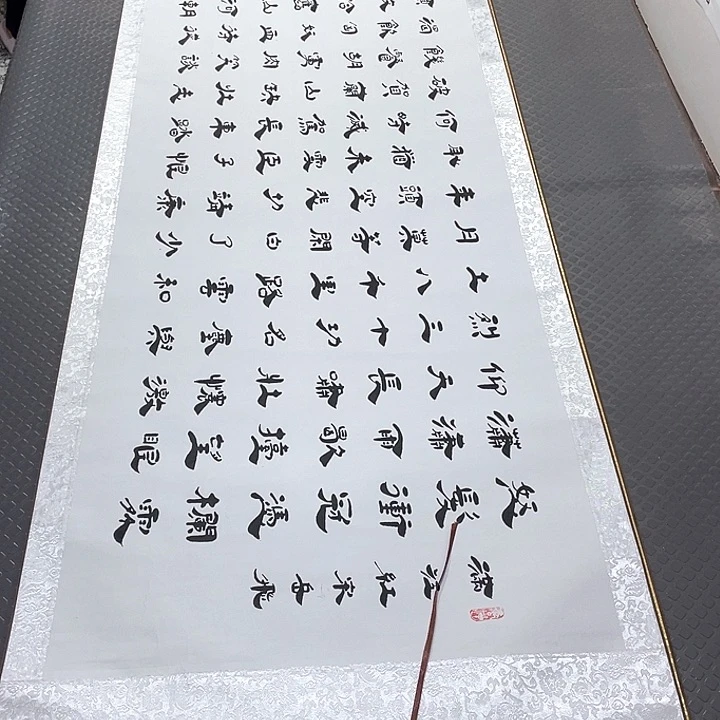 滿江紅宋岳飛
怒髮衝冠馮欄處
瀟瀟雨歇擡望眼
仰天長嘯壯懷激
烈三十功名塵與
土八千里路雲和
月莫等閒白了少
年頭空悲切靖康
恥猶未雪臣子恨
何時滅駕長車踏
破賀蘭山缺壯志
饑餐胡虜肉笑談
渴飲匈奴血待從
山河朝